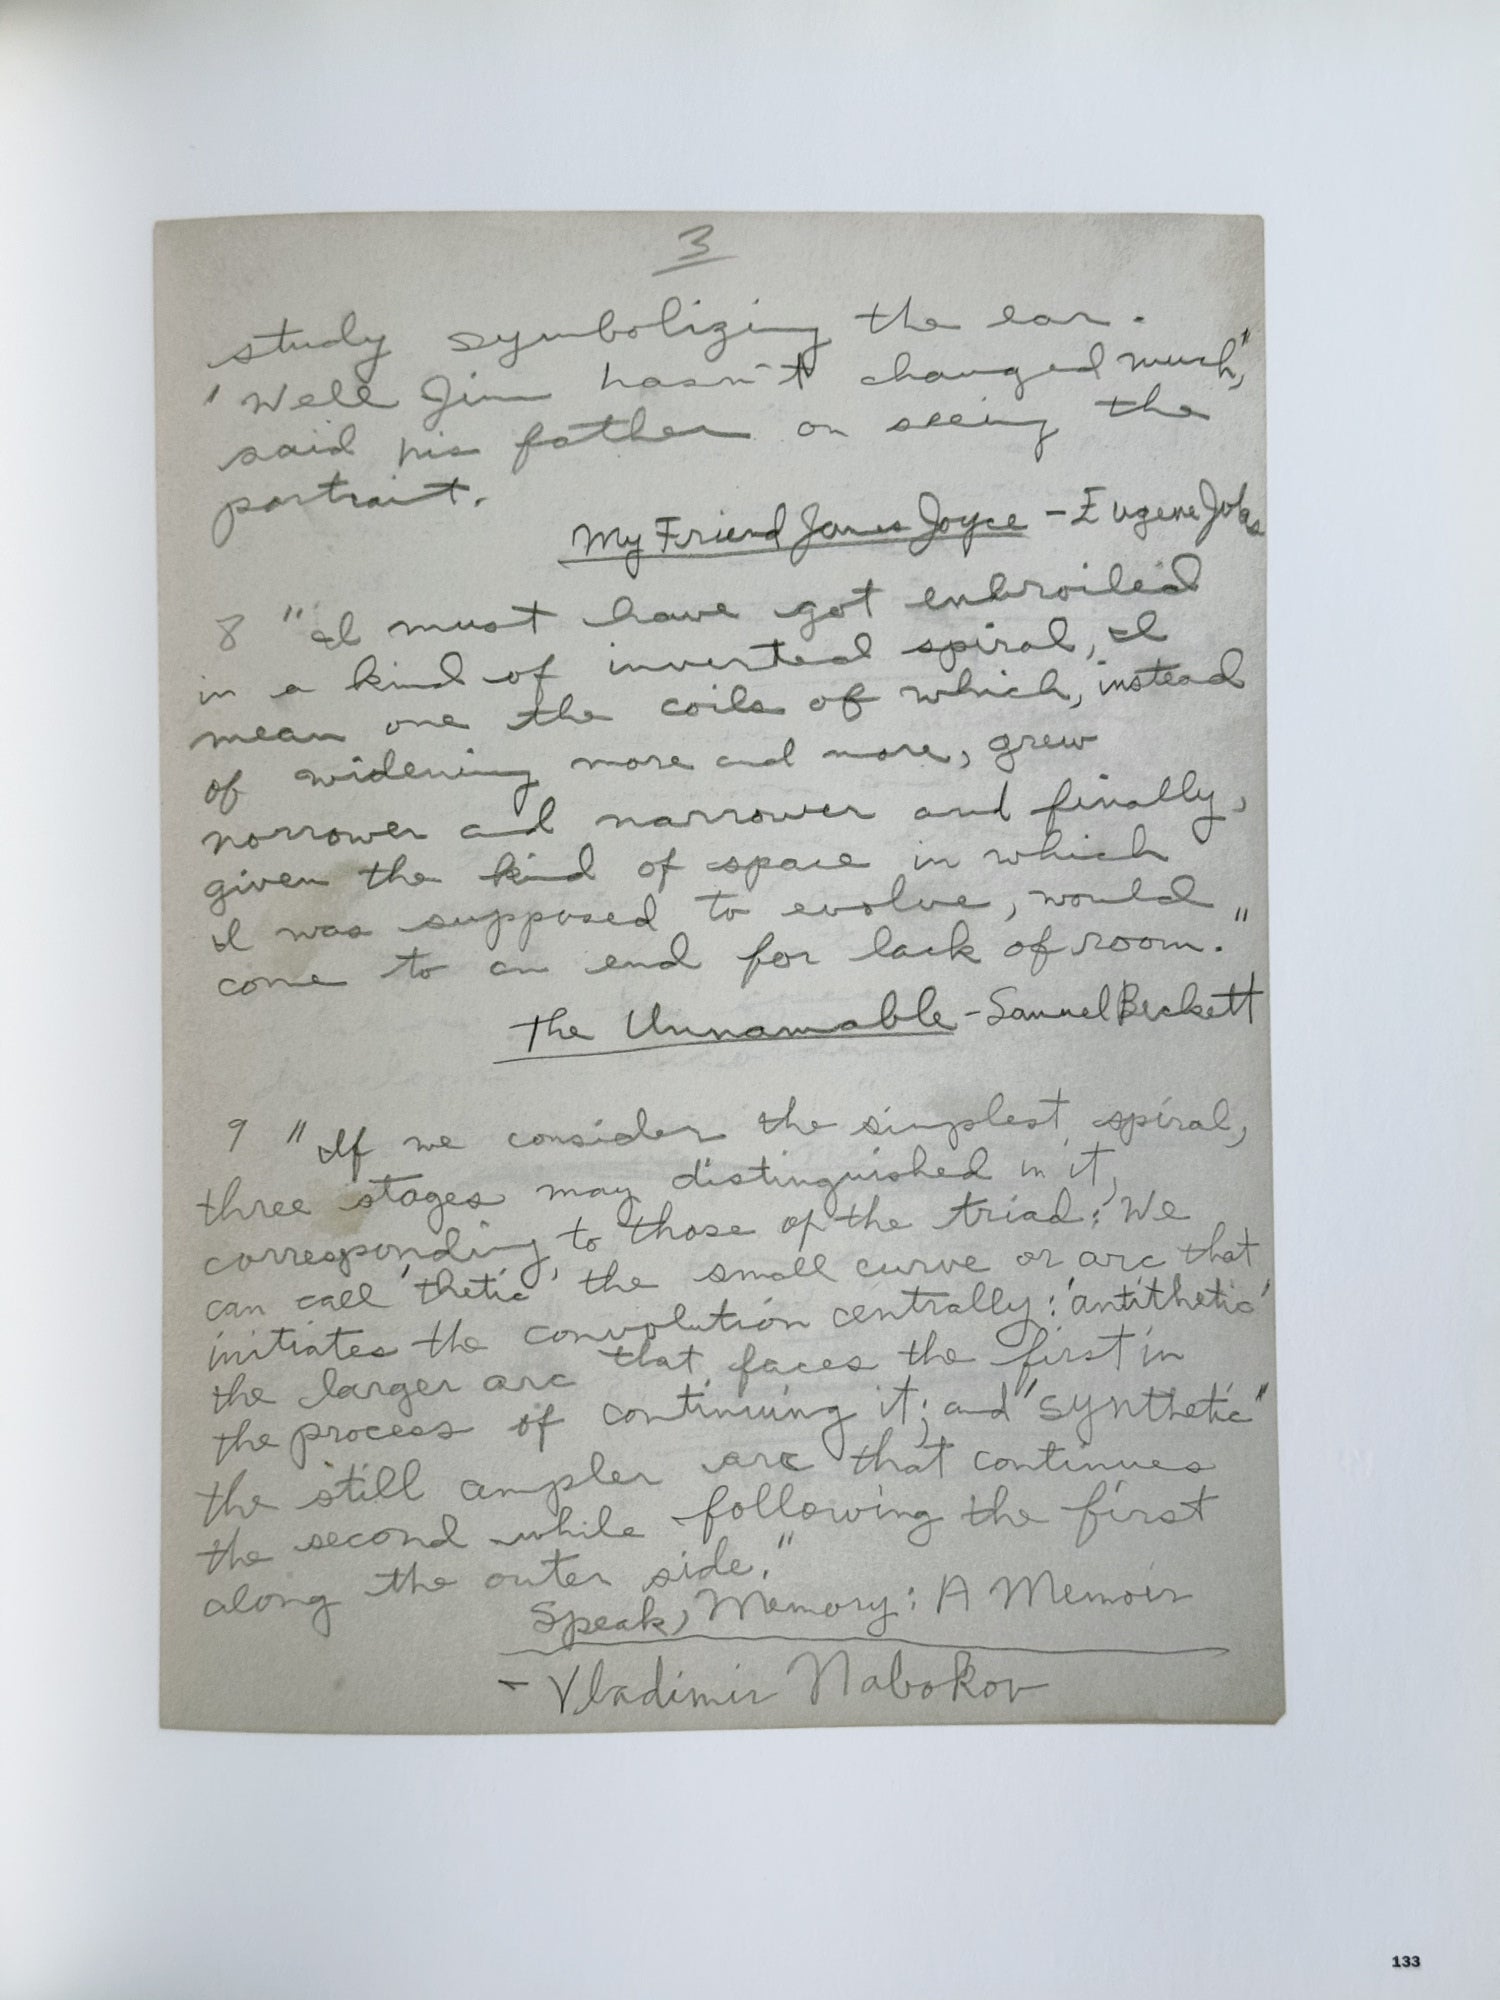 3
study symbolizing the ear.
"Well Jim hasn't changed much,"
said his father on seeing the
portrait.
My Friend James Joyce - Eugene Jolas
8 "I must have got embroiled
in a kind of inverted spiral, I
mean one the coils of which, instead
of widening more and more, grew
narrower and narrower and finally,
given the kind of space in which
I was supposed to evolve, would
come to an end for lack of room."
The Unnamable - Samuel Beckett
9 "If we consider the simplest spiral,
three stages may distinguished in it,
corresponding to those of the triad: We
can call 'thetic' the small curve or arc that
initiates the convolution centrally: 'antithetic'
the larger arc that faces the first in
the process of continuing it; and "synthetic"
the still ampler arc that continues
the second while following the first
along the outer side."
Speak, Memory: A Memoir
- Vladimir Nabokov
133